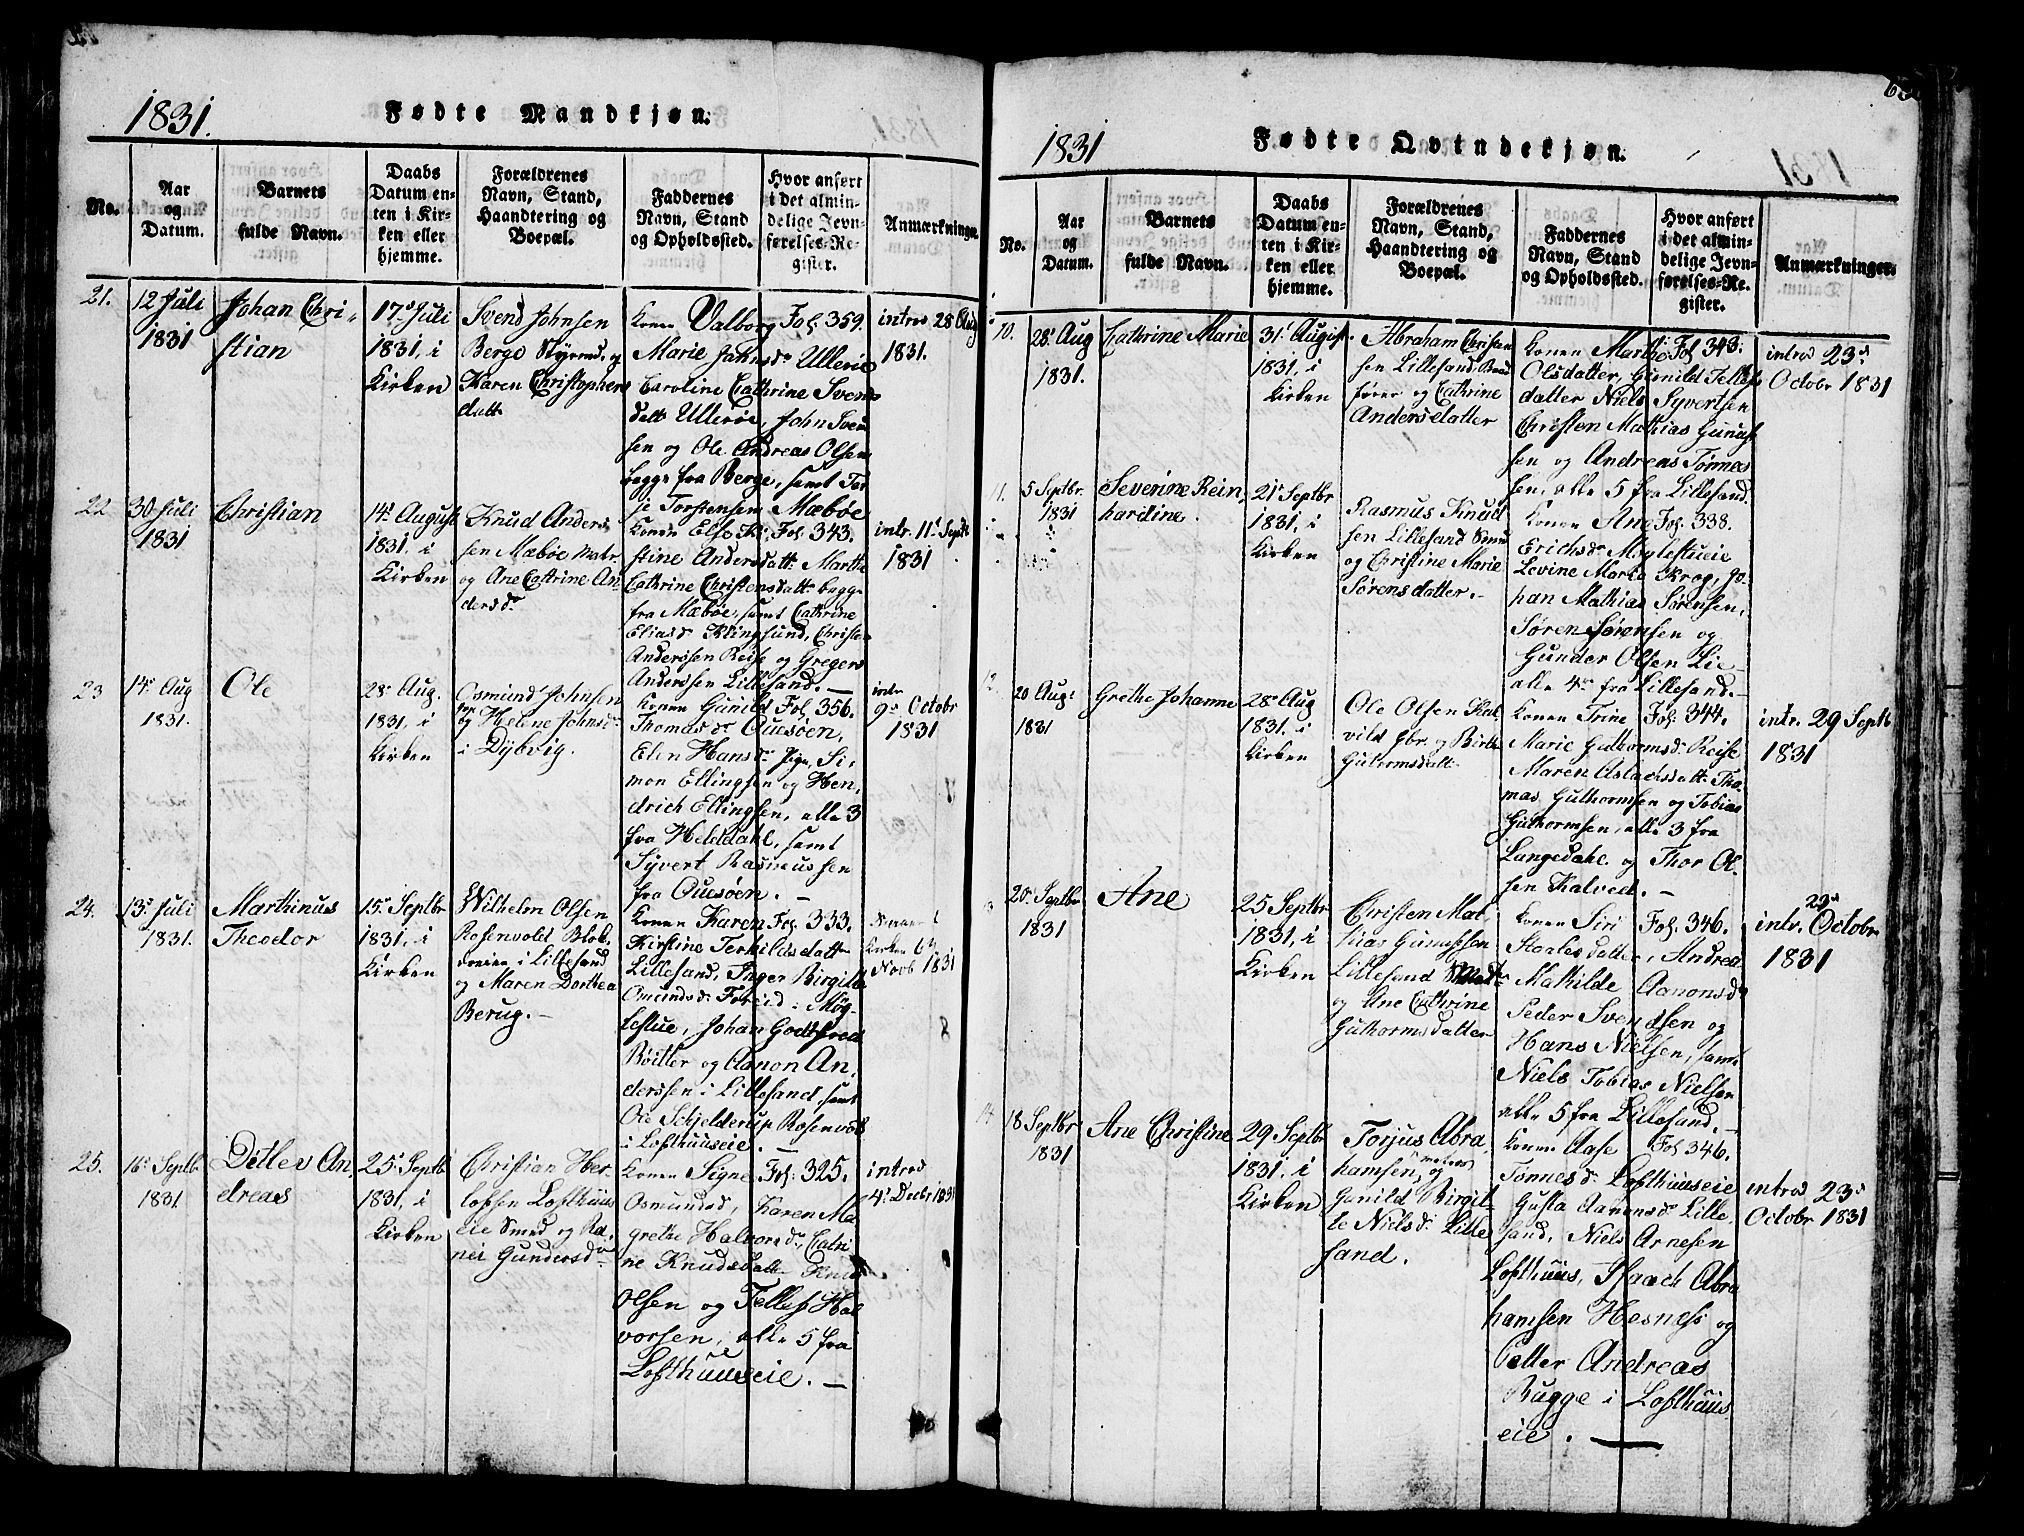 1831.
Fødte Mandkjøn.
No.
Aar
og
Datum.
Barnets
fulde Navn.
Daabs
Datum en-
ten i Kir-
ken eller
hjemme.
Forældrenes
Navn, Stand,
Haandtering og
Boepæl.
Faddernes
Navn, Stand
og Opholdssted.
Hvor anført
i det almin-
delige Jevn-
førelses-Re-
gister.
Anmærkninger
21.
12 Juli
1831
Johan Chri-
stian
17d Juli
1831, i
Kirken
Svend Johnsen
Berge Styrmd. og
Karen Christophers
datt
Konen Valborg
Marie Jahnsdr Ullerøe
Caroline Cathrine Svends
datt Ullerøe, John Sven
sen og Ole Andreas Olsen
begge fra Berge, samt Tor
je Torstensen Mæbøe
Fol. 359.
introd 28 Aug
1831.
22
30 Juli
1831
Christian
14d August
1831, i
Kirken
Knud Anders
sen Mæbøe matr
og Ane Catrine An
dersdr
Konen Else Ki
stine Andersdatt Marthe
Cathrine Christensdatt begge
fra Mæbøe, samt Cathrine
Eliasdr Klingsund, Christen
Anderssen Reise og Gregers
Anderssen Lillesand. —
Fol. 343.
intr. 11d Septb
1831
23
14d Aug
1831.
Ole
28d Aug.
1831. i
Kirken
Osmund Johnsen
og Helene Johnsdr
i Dybvig.
Konen Gunild
Thomasdr Ouesøen,
Elen Hansdr Pige, Si
mon Ellingsen og Hen
drich Ellingsen, alle 3
fra Helldahl, samt
Syvert Rasmussen
fra Ouesøen. —
Fol. 356.
intr
9d Octobr
1831
24.
13d Juli
1831.
Marthinus
Theodor
15d Septbr
1831. i
Kirken
Wilhelm Olsen
Rosenvold Blok
dreier i Lillesand
og Maren Dorthea
Berug. —
Konen Karen
Kirstine Terkildsdatt
Lillesand, Inger Birgitte
Omundsdr i Møg-
lestue, Johan Godtfred
Bøitler og Aanon An
derssen i Lillesand, samt
Ole Schjelderup Rosenvold
i Lofthuuseie. —
Fol. 333.
Kirken 6d
Novb 1831
25.
16d Septb
1831.
Ditlev An
dreas
25d Septb
1831, i
Kirken
Christian Her
lofsen Lofthuus
eie Smed og Ra
nei Gundersdr
Konen Signe
Osmundsd, Karen Ma
grethe Halvorsdr, Catri
ne Knudsdatt Knud
Olsen og Tellef Hal
vorsen, alle 5 fra
Lofthuuseie. —
Fol. 325.
introd
4d Decbr 1831
1831
Fødte Qvindekjøn.
No.
Aar
og
Datum.
Barnets
fulde Navn.
Daabs
Datum en-
ten i Kir-
ken eller
hjemme.
Forældrenes
Navn, Stand,
Haandtering og
Boepæl.
Faddernes
Navn, Stand
og Opholdssted.
Hvor anført
i det almin-
delige Jevn-
førelses-Re-
gister.
Anmærkninger.
10.
28d Aug
1831.
Cathrine Marie
31d August.
1831, i
Kirken
Abraham Christen
sen Lillesand
fører og Cathrine
Andersdatter
Konen Marthe
Olsdatter, Gunild Tellefs
datter Niels Syvertsen
Christen Mathias Gunuf
sen og Andreas Tønnes
sen, alle 5 fra Lillesand.
Fol. 348.
introd 23d
Octobr 1831
11.
5 Septbr.
1831
Severine Rein
hardine.
21d Septbr
1831. i
Kirken
Rasmus Knud
sen Lillesand Smed
og Christine Marie
Sørensdatter. —
Konen Ane
Erichsdr Møglestueie
Levine Maria Krog, Jo-
han Mathias Sørensen,
Søren Sørensen og
Gunder Olsen Lie —
alle 4re fra Lillesand. —
Fol. 338.
12
20 Augt
1831
Grethe Johanne
28d Aug
1831. i
Kirken
Ole Olsen Kal
vild Gbr. og Birthe
Guthormsdatt
Konen Trine
Marie Guthormsdr Reise
Maren Aslachsdatt Tho
mas Guthormsen og Tobias
Guthormsen, alle 3 fra
Langedahl og Thor Ol
sen Kalveld. —
Fol. 344.
intr. 29 Septb
1831
20d Septbr
1831
Ane
25 Septbr
1831, i
Kirken
Christen Mat
hias Gunufsen
Lillesand
og Ane Cathrine
Guthormsdatter
Konen Siri
Staalesdatter, Andrea
Mathilde Aanonsdr
Peder Svendsen og
Hans Nielsen, samt
Niels Tobias Nielsen
alle 5 fra Lillesand. —
Fol. 346.
23d
intr. Octobr
1831
14
18 Septbr
1831
Ane Christine
29 Septbr
1831. i
Kirken
Torjus Abra
hamsen, matros og
Gunild Birgit
te Nielsdr Lille
sand.
Konen Aase
Tønnesdr Lofthuuseie
Gusta Aanonsdr Lille
sand, Niels Arnesen
Lofthuus, Isaach Abra
hamsen Hesness og
Petter Andreas
Bugge i Lofthuus
eie. —
Fol 346.
introd 23d
Octobr 1831